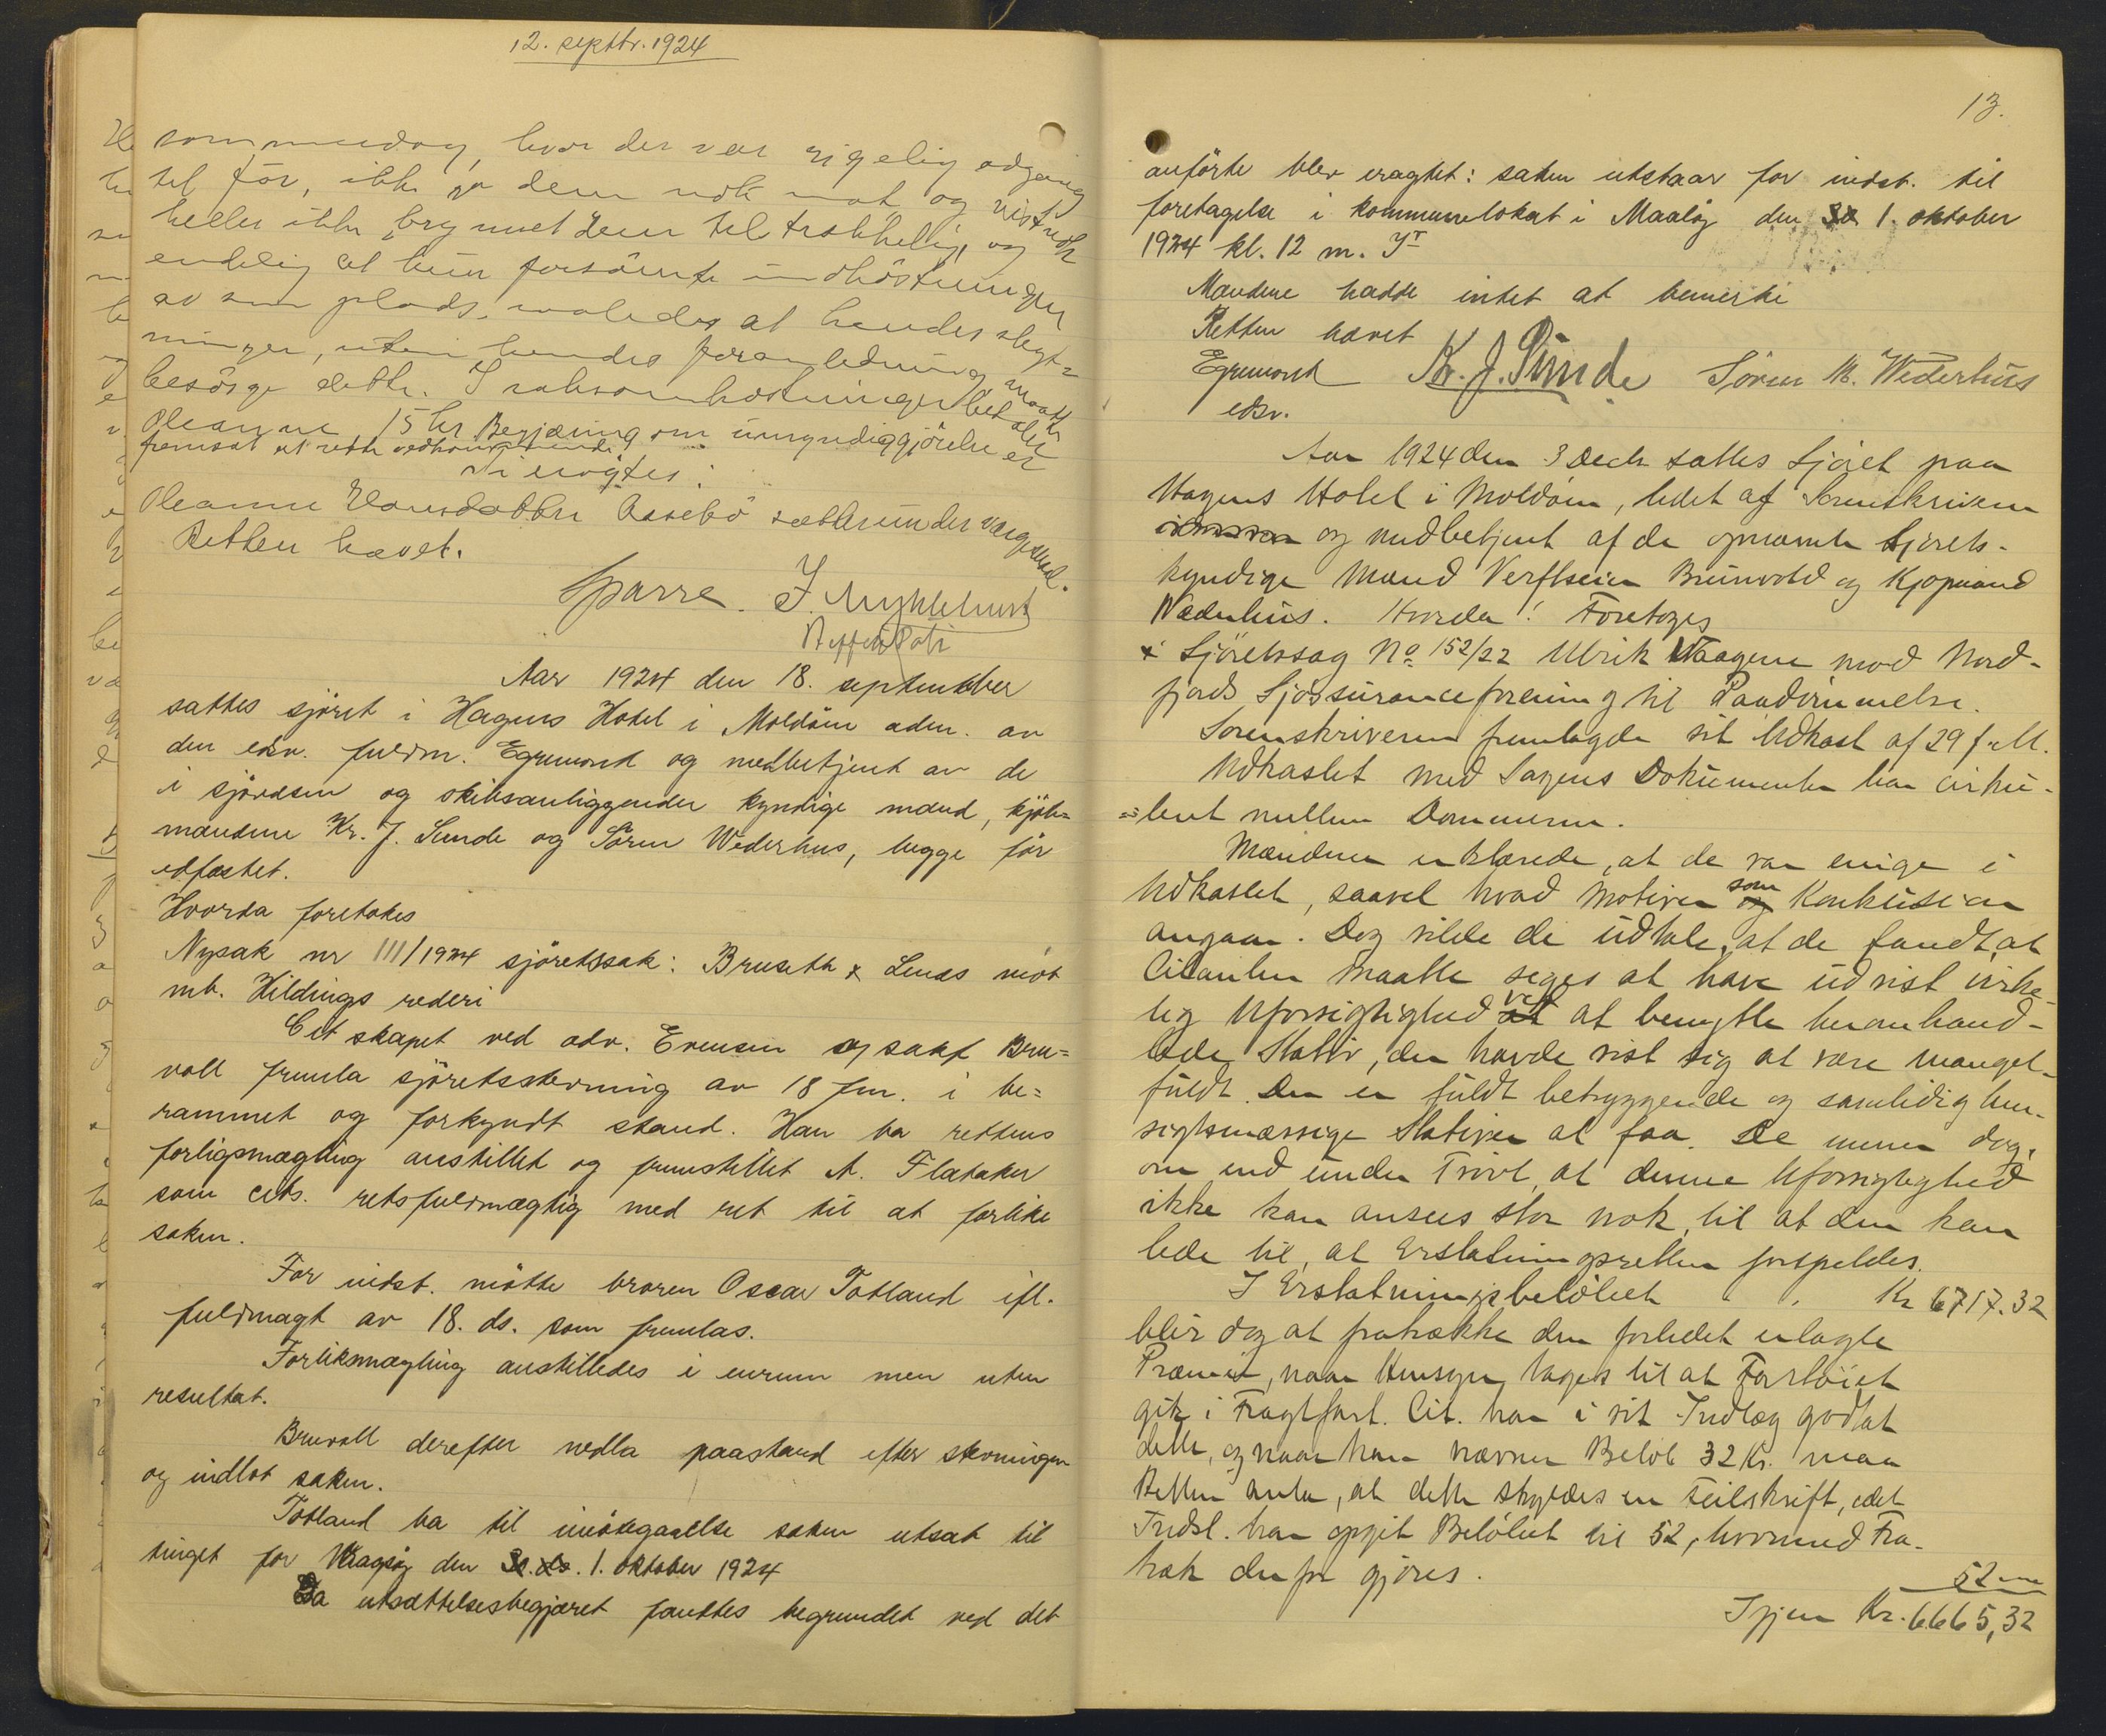 12. septbr. 1924
sommerdag, hvor der var rigelig adgang
til för, ikke ga dem nok mat og vistnok
heller ikke brynnet dem tilstrækkelig, og
endelig at hun forsömte indhöstningen
av sin plads, saaledes at hendes slegt-
ninger, uten hendes foranledning maatte
besörge dette. I saksomkostninger betaler
Oleanne 15 kr Begjæring om umyndiggjörelse er
fremsat
Ti eragtes:
Oleanne Hansdatter Aasebö sættes under vergemaal.
Retten hævet.
Sparre. J. Myklebust
Aar 1924 den 18. september
sattes sjöret i Hagens Hotel i Moldöen adm. av
den edsv. fuldm. Egemond og medbetjent av de
i sjövæsen og skibsanliggender kyndige mænd, kjöb=
mændene Kr. J. Sunde og Sören Wederhus, begge för
edfæstet.
Hvorda foretokes
Nysak nr 111/1924 sjöretssak: Bruseth & Lenes mot
mb. Hildings rederi
Citskapet ved adv. Evensen og sakf Bru=
voll fremla sjöretsstevning av 18 fm. i be=
rammet og forkyndt stand. Han ba rettens
forligsmægling anstillet og fremstillet A. Flataker
som cits. retsfuldmægtig med ret til at forlike
saken.
For indst. mötte broren Oscar Totland ifl.
fuldmagt av 18. ds. som fremlas.
Forliksmægling anstilledes i enrum men uten
resultat.
Bruvoll derefter nedla paastand efter stevningen
og indlot saken.
Totland ba til imötegaaelse saken utsat til
tinget for Vaagsöy den 1. oktober 1924
Da utsættelsesbegjæret fandtes begrundet ved det
13.
anförte blev eragtet: saken utstaar for indst. til
foretagelse i kommunelokalet i Maalöy den 1. oktober
1924 kl. 12 m.
Mændene hadde intet at bemerke
Retten hævet
Egemond Kr. J. Sunde Sören M. Wederhus
edsv.
Aar 1924 den 3 Decb sattes Sjöret paa
Hagens Hotel i Moldöen, ledet af Sorenskriveren
og medbetjent af de opnævnte Sjörets-
kyndige Mænd Verftseier Brunvold og Kjöpmand
Wederhus. Hvorda! Foretoges
Sjöretssag No 152/22 Ulrik Vaagene mod Nord-
fjords Sjöassuranceforening til Paadömmelse.
Sorenskriveren fremlagde sit Udkast af 29 f. M.
Udkastet med Sagens Dokumenter har cirku-
=leret mellem Dommerne.
Mændene erklærede, at de var enige i
Udkastet, saavel hvad Motiver som Konklusion
angaar. Dog vilde de udtale, at de fandt, at
Citanten maatte siges at have udvist virke-
lig Uforsigtighed ved at benytte heromhand-
lede Stativ, der havde vist sig at være mangel-
fuldt. Der er fuldt betryggende og samtidig hen-
sigtsmæssige Stativer at faa. De mener dog,
om end under Tvivl, at denne Uforsigtighed
ikke kan ansees stor nok, til at den kan
lede til, at Erstatningsretten forspildes.
I Erstatningsbelöbet Kr 6717.32
blir dog at fratrække den forledet erlagte
Præmie, naar Hensyn tages til at Fartöiet
gik i Fragtfart. Cit. har i sit Indlæg godtat
dette, og naar han nævner Belöb 32 Kr. maa
Retten anta, at dette skyldes en Feilskrift, idet
Indst. har opgit Belöbet til 52, hvormed Fra-
træk derfor gjöres.
52
Igjen Kr. 6665,32